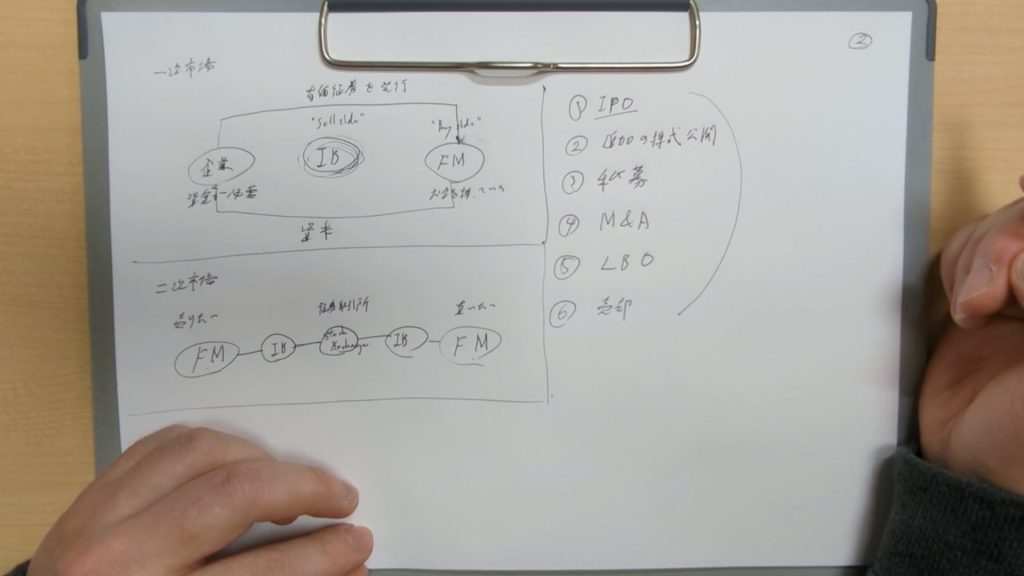 ②
一次市場
有価証券を発行
"Sell side"
"Buy side"
企業
IB
FM
資金が必要
お金を持っている
資本
二次市場
売りたい
証券取引所
買いたい
FM
IB
Stock Exchange
IB
FM
① IPO
② 追加の株式公開
③ 私募
④ M&A
⑤ LBO
⑥ 売却